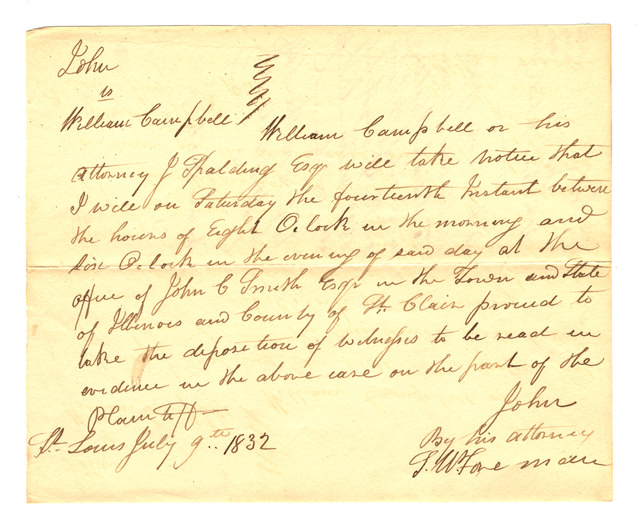 John
vs
William Campbell
William Campbell or his
attorney J Spalding Esqr will take notice that
I will on Saturday the fourteenth Instant between
the hours of Eight O,clock in the morning and
six O,clock in the evening of said day at the
office of John C Smith Esqr in the Town and State
of Illinois and County of St. Clair proceed to
take the deposition of witnesses to be read in
evidence in the above case on the part of the
Plaintiff—
John
St. Louis July 9th 1832
By his attorney